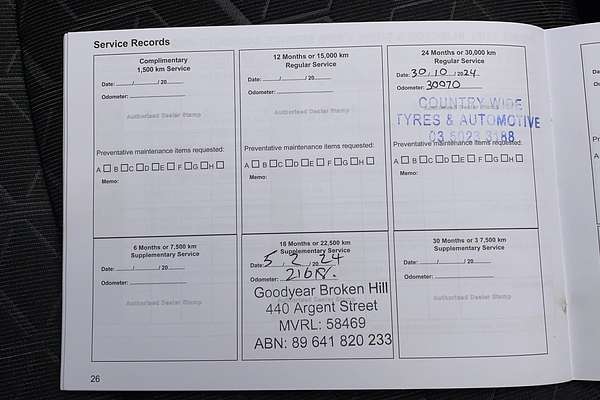 Service Records
Complimentary
1,500 km Service
Date: / / 20
Odometer:
Authorised Dealer Stamp
Preventative maintenance items requested:
A B C D E F G H
Memo:
12 Months or 15,000 km
Regular Service
Date: / / 20
Odometer:
Authorised Dealer Stamp
Preventative maintenance items requested:
A B C D E F G H
Memo:
24 Months or 30,000 km
Regular Service
Date: 30 / 10 / 2024
Odometer: 30970
Authorised Dealer Stamp
COUNTRY WIDE
TYRES & AUTOMOTIVE
03 5023 3188
Preventative maintenance items requested:
A B C D E F G H
Memo:
6 Months or 7,500 km
Supplementary Service
Date: / / 20
Odometer:
Authorised Dealer Stamp
18 Months or 22,500 km
Supplementary Service
Date: 5 / 2 / 20 24
Odometer:
Authorised Dealer Stamp
Goodyear Broken Hill
440 Argent Street
MVRL: 58469
ABN: 89 641 820 233
30 Months or 3 7,500 km
Supplementary Service
Date: / / 20
Odometer:
Authorised Dealer Stamp
26